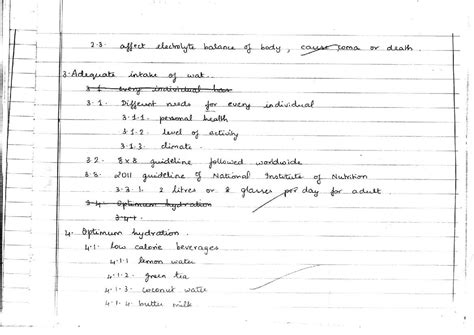 2.3. affect electrolyte balance of body, cause coma or death.
3. Adequate intake of wat..
3.1 every individual has
3.1. Different needs for every individual
3.1.1. personal health
3.1.2. level of activity
3.1.3. climate.
3.2. 8x8 guideline followed worldwide
3.3. 2011 guideline of National Institute of Nutrition
3.3.1. 2 litres or 8 glasses per day for adult
3.4. Optimum hydration
3.4.1.
4. Optimum hydration.
4.1. low calorie beverages
4.1.1 lemon water
4.1.2. green tea
4.1.3. coconut water
4.1.4. butter milk